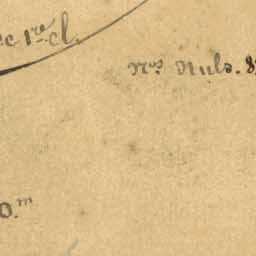 c 1re cl.
Nos Nuls. 8
0.m